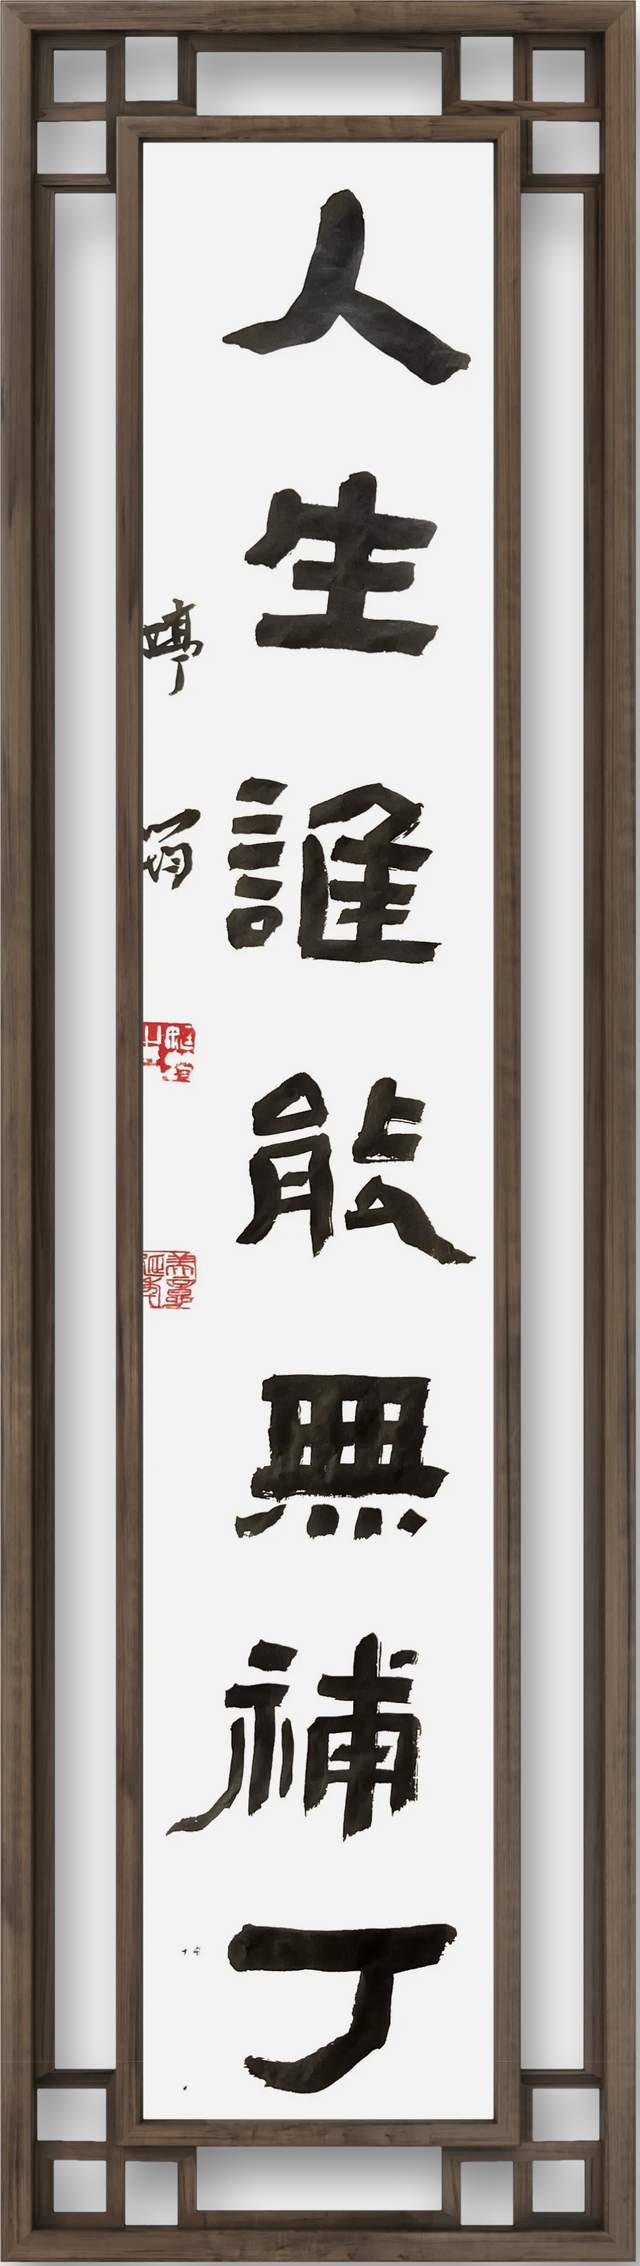 人生誰能無補丁